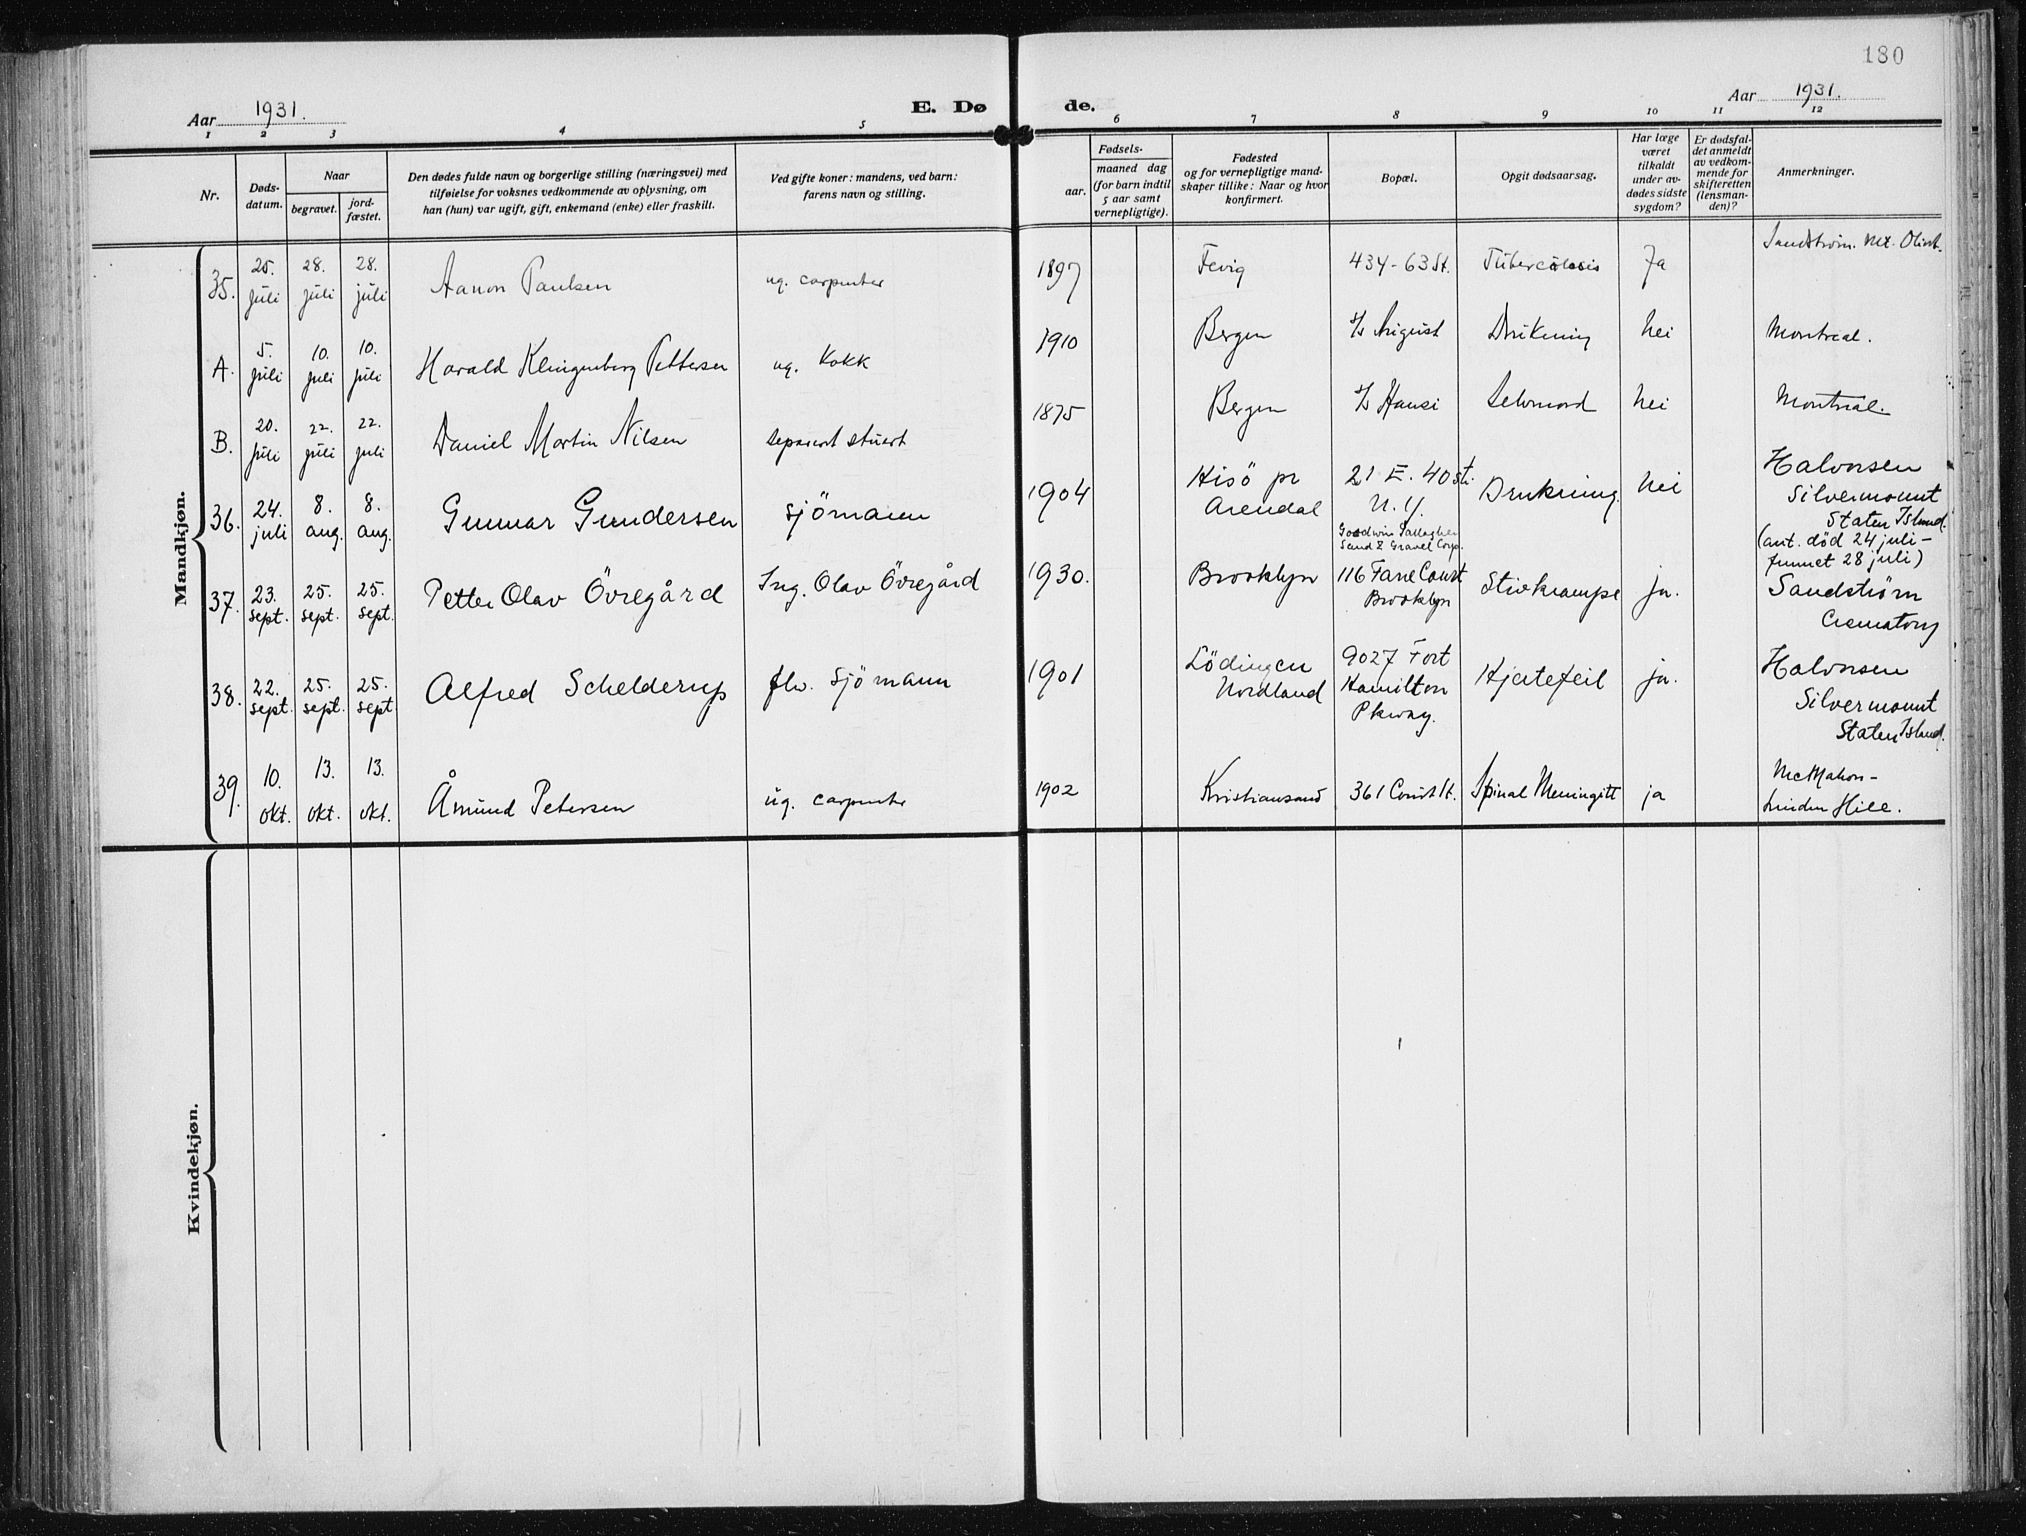 180
Aar 1931.
E. Dø de.
Aar 1931.
1 2 3 4 5 6 7 8 9 10 11 12
Nr.
Døds-
datum.
Naar
begravet.
jord-
fæstet.
Den dødes fulde navn og borgerlige stilling (næringsvei) med
tilføielse for voksnes vedkommende av oplysning, om
han (hun) var ugift, gift, enkemand (enke) eller fraskilt.
Ved gifte koner: mandens, ved barn:
farens navn og stilling.
Fødsels-
aar.
maaned dag
(for barn indtil
5 aar samt
vernepligtige).
Fødested
og for vernepligtige mand-
skaper tillike: Naar og hvor
konfirmert.
Bopæl.
Opgit dødsaarsag.
Har læge
været
tilkaldt
under av-
dødes sidste
sygdom?
Er dødsfal-
det anmeldt
av vedkom-
mende for
skifteretten
(lensman-
den)?
Anmerkninger.
Mandkjøn.
35. 25. juli 28. juli 28. juli Aanon Paulsen ug. carpenter 1897 Fevig 434-63 St. Tuberculosis Ja Sandstrøm. Mt. Olivet.
A. 5. juli 10. juli 10. juli Harald Klingenberg Pettersen ug. Kokk 1910 Bergen s/s August Drukning Nei Montreal.
B. 20. juli 22. juli 22. juli Daniel Martin Nilsen separert stuert 1875 Bergen s/s Hansi Selvmord Nei Montreal.
36. 24. juli 8. aug. 8. aug. Gunnar Gundersen sjömann 1904 Hisö pr
Arendal
21 E. 40 St.
N.Y.
Goodwin Gallagher
Sand & Gravel Corp.
Drukning. Nei
Halvorsen
Silvermount
Staten Island.
(ant. död 24 juli-
funnet 28 juli)
37. 23. sept. 25. sept. 25. sept. Petter Olav Övregård Ing. Olav Övregård 1930. Brooklyn
116 Fane Court
Brooklyn
Stivkrampe ja.
Sandstrøm
Crematory
38. 22. sept. 25. sept. 25. sept Alfred Schelderup flv. sjömann 1901 Lödingen
Nordland
9027 Fort
Hamilton
Pkway.
Hjertefeil ja.
Halvorsen
Silvermount
Staten Island.
39. 10. okt. 13. okt. 13. okt. Åmund Petersen ug. carpenter 1902 Kristiansand 361 Court St. Spinal Meningitt ja
McMahon-
Linden Hill.
Kvindekjøn.